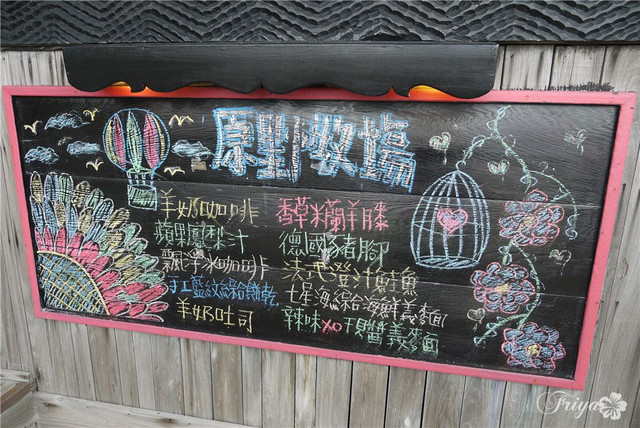 原點牧場
羊奶咖啡
蘋果鳳梨汁
飄浮冰咖啡
手工藍紋綜合餅乾
羊奶吐司
香草羊膝
德國豬腳
法式橙汁鮭魚
七星海綜合海鮮義麵
辣味XO干貝醬義麵
Friya